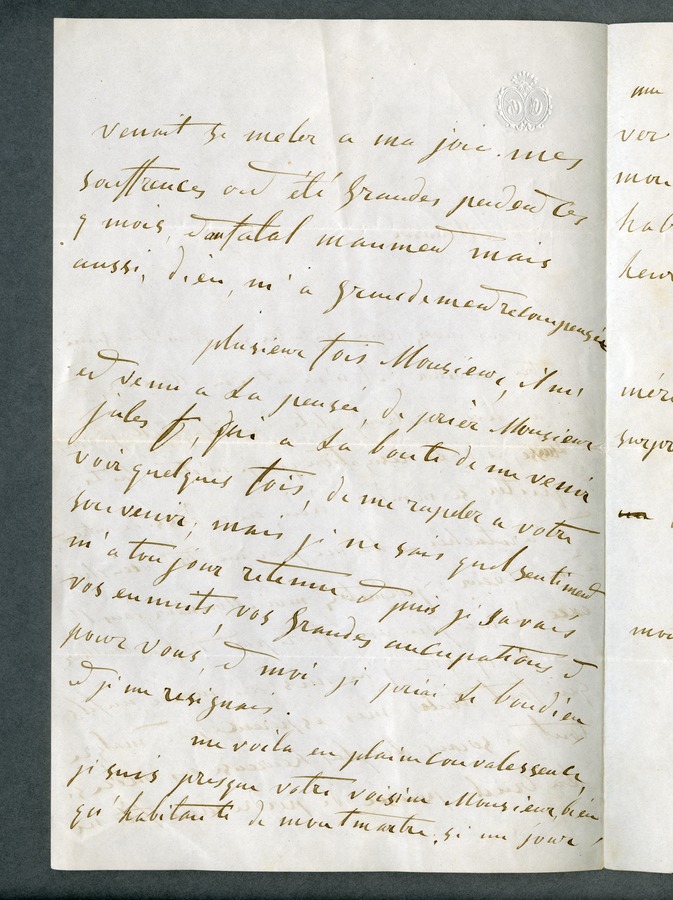 venait se meler a ma joie. mes
souffrances ont été Grandes pendent ces
9 mois, dont atal maument mais
aussi, dieu, m'a Grandement recompensée
plusieur fois Monsieur, il m'
est venu a La pensée, de prier Monsieur
jules f, qui a La bonté de me venir
voir quelques fois, de me rapeler a votre
souvenir, mais je ne sais quel sentiment
m'a toujour retenue et puis je savais
vos ennuits, vos Grandes aucupations et
pour vous, et moi je priai Le bon dieu,
et je me resignais.
me voila en plaine convalessence,
je suis presque votre voisine Monsieur, bien
qu'habitante de montmartre. si un jour